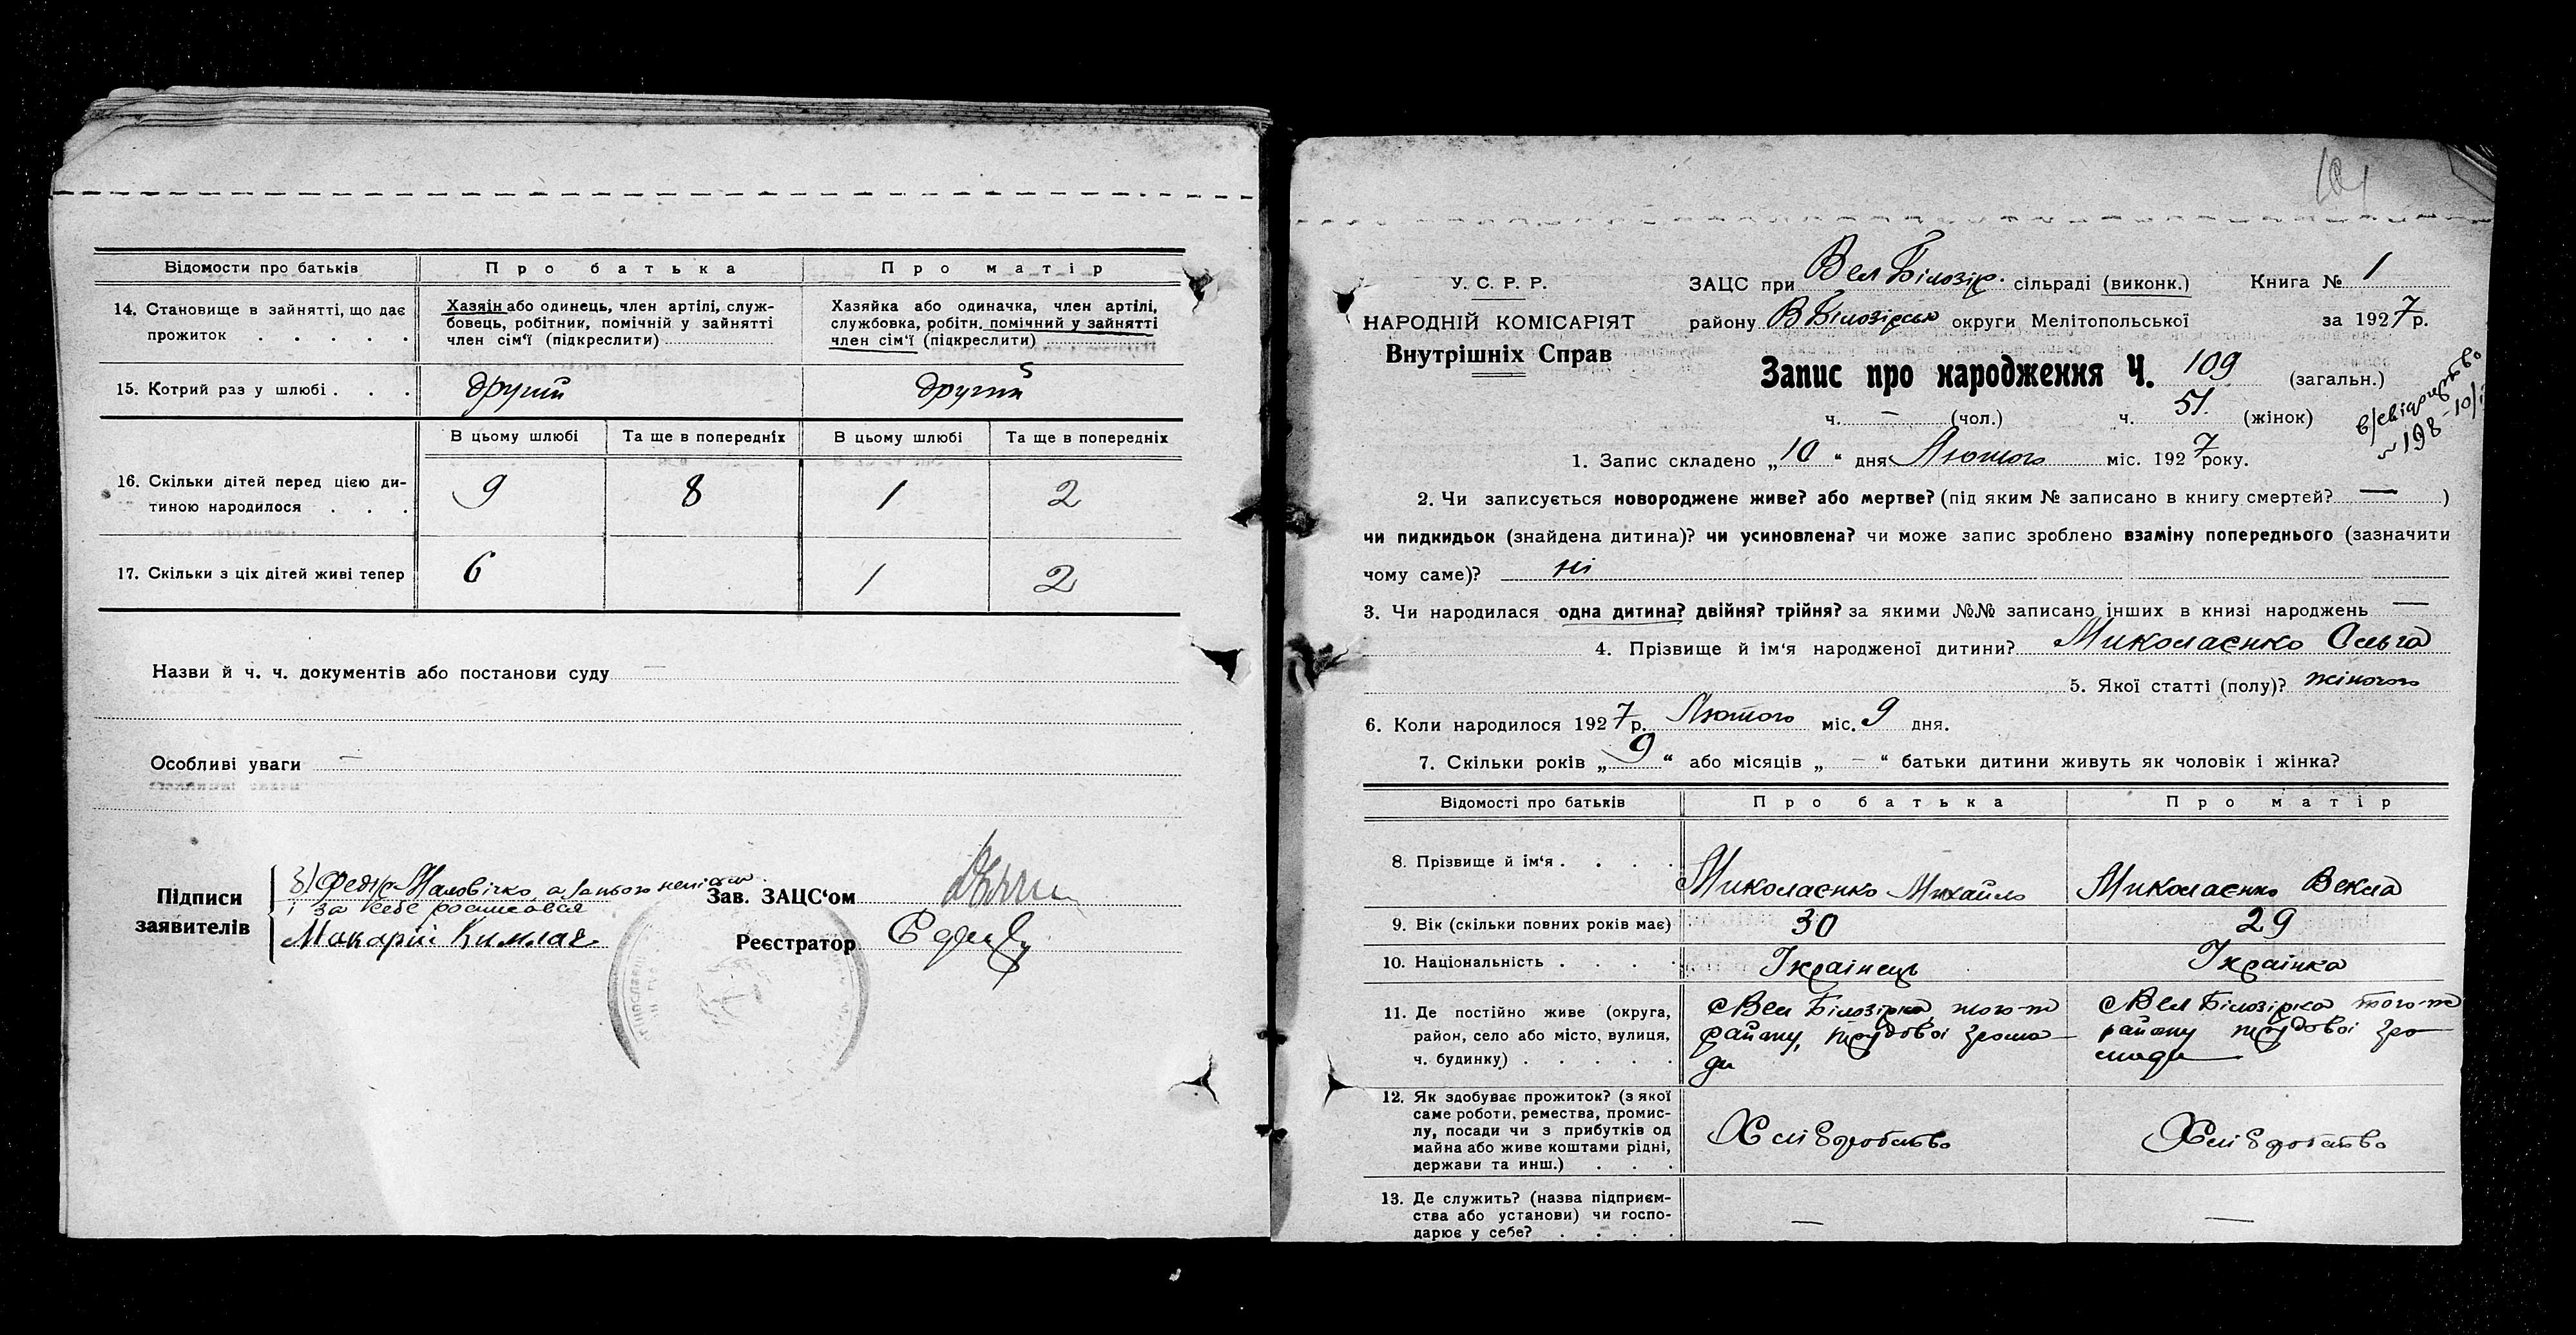 Відомости про батьків
Про батька
Про матір
14. Становище в зайнятті, що дає прожиток . . . . .
Хазяін або одинець, член артілі, служ-
бовець, робітник, помічній у зайнятті
член сім'ї (підкреслити)
Хазяйка або одиначка, член артілі,
службовка, робітн. помічний у зайнятті
член сім'ї (підкреслити)
15. Котрий раз у шлюбі . . .
другий
другий
В цьому шлюбі
Та ще в попередніх
В цьому шлюбі
Та ще в попередніх
16. Скільки дітей перед цією ди-
тиною народилося . . .
9
8
1
2
17. Скільки з ціх дітей живі тепер
6
1
2
Назви й ч. ч. документів або постанови суду —
Особливі уваги —
Підписи
заявителів
Федір
і за себе росписався
Макарій
Зав. ЗАЦС'ом
Реєстратор
101
У. С. Р. Р.
НАРОДНІЙ КОМІСАРІЯТ
Внутрішніх Справ
ЗАЦС при Вел Білозір. сільраді (виконк.) Книга № 1
району ВБілозірськ округи Мелітопольської за 1927 р.
Запис про народження Ч. 109 (загальн.)
ч. — (чол.) ч. 51. (жінок)
198
1. Запис складено „10“ дня Лютого міс. 1927 року.
2. Чи записується новороджене живе? або мертве? (під яким № записано в книгу смертей? — )
чи пидкидьок (знайдена дитина)? чи усиновлена? чи може запис зроблено взаміну попереднього (зазначити
чому саме)? ні
3. Чи народилася одна дитина? двійня? трійня? за якими №№ записано інших в книзі народжень —
4. Прізвище й ім'я народженої дитини? Миколаєнко Ольга
5. Якої статті (полу)? жіночого
6. Коли народилося 1927 р. Лютого міс. 9 дня.
7. Скільки років „9“ або місяців „ — “ батьки дитини живуть як чоловік і жінка?
Відомості про батьків
Про батька
Про матір
8. Прізвище й ім'я . . . .
Миколаєнко Михайло
Миколаєнко Векла
9. Вік (скільки повних років має)
30
29
10. Національність . . . .
Україінець
Україінка
11. Де постійно живе (округа,
район, село або місто, вулиця,
ч. будинку) . . . . .
с Вел Білозірка, того-ж
району, трудової грома-
ди
с Вел Білозірка того-ж
району трудової гро-
мади
12. Як здобуває прожиток? (з якої
саме роботи, ремества, промис-
лу, посади чи з прибутків од
майна або живе коштами рідні,
держави та инш.) . . .
Хліборобство
Хліборобство
13. Де служить? (назва підприєм-
ства або установи) чи госпо-
дарює у себе? . . . .
—
—